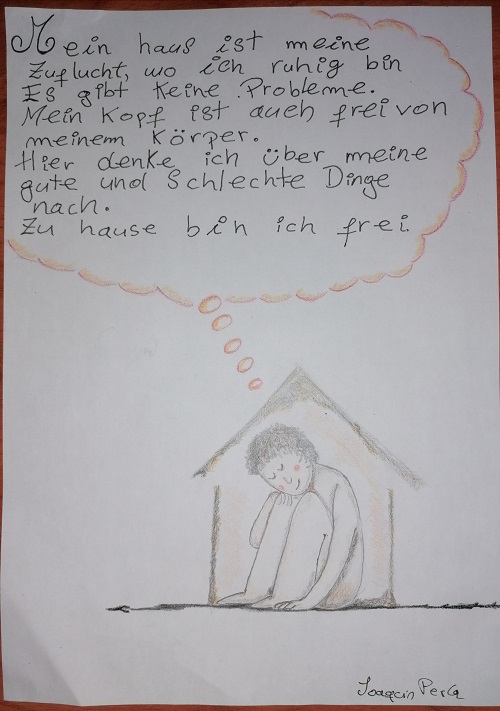 Mein haus ist meine
Zuflucht, wo ich ruhig bin
Es gibt keine Probleme.
Mein Kopf ist auch frei von
meinem Körper.
Hier denke ich über meine
gute und Schlechte Dinge
nach.
Zu hause bin ich frei.
Joaquin